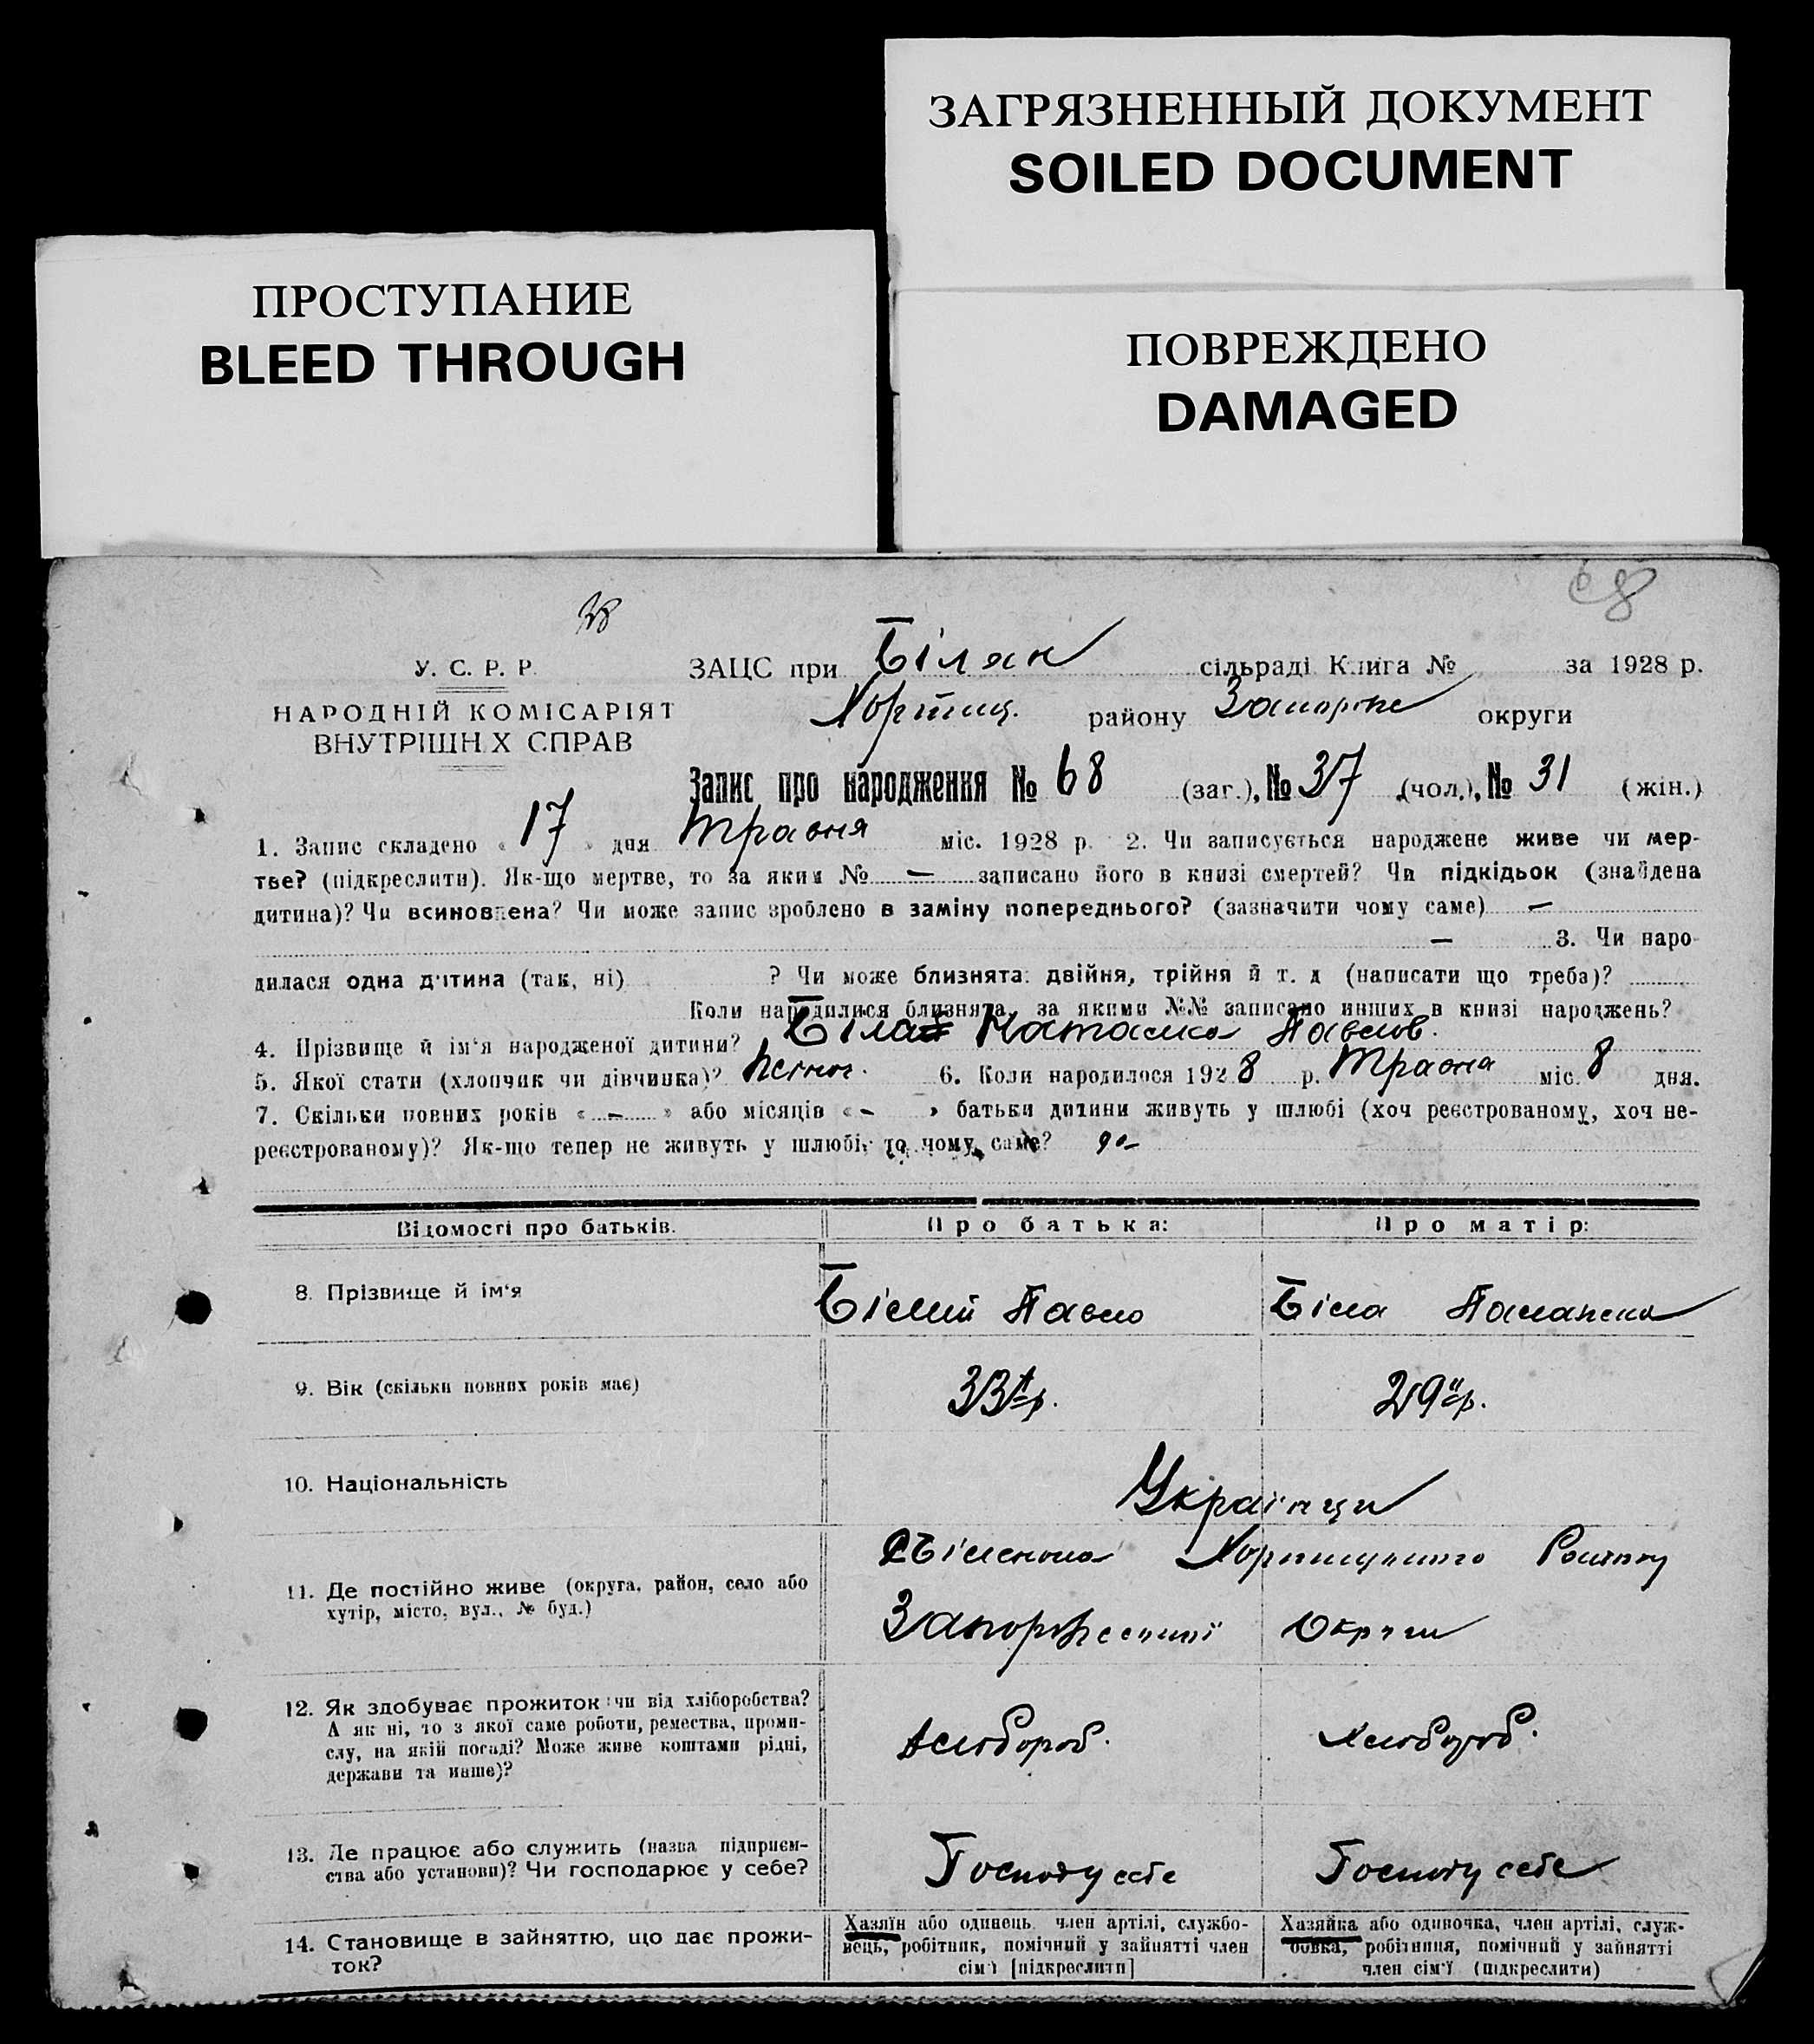 ЗАГРЯЗНЕННЫЙ ДОКУМЕНТ
SOILED DOCUMENT
ПРОСТУПАНИЕ
BLEED THROUGH
ПОВРЕЖДЕНО
DAMAGED
68
У. С. Р. Р.
НАРОДНІЙ КОМІСАРІЯТ
ВНУТРІШНІХ СПРАВ
ЗАЦС при Білян сільраді Книга № за 1928 р.
Хортиц. району Запоріжс округи
Запис про народження № 68 (заг.), № 37 (чол.), № 31 (жін.)
1. Запис складено « 17 » дня Травня міс. 1928 р. 2. Чи записується народжене живе чи мер-
тве? (підкреслити). Як-що мертве, то за яким № — записано його в книзі смертей? Чи підкідьок (знайдена
дитина)? Чи всиновлена? Чи може запис зроблено в заміну попереднього? (зазначити чому саме) —
— 3. Чи наро-
дилася одна дитина (так, ні) ? Чи може близнята: двійня, трійня й т. д (написати що треба)?
Коли народилися близнята, за якими №№ записано инших в книзі народжень?
4. Прізвище й ім'я народженої дитини? Біла Наталка Павлов.
5. Якої стати (хлопчик чи дівчинка)? жіноч. 6. Коли народилося 1928 р. Травня міс. 8 дня.
7. Скільки повних років « — » або місяців « - » батьки дитини живуть у шлюбі (хоч реєстрованому, хоч не-
реєстрованому)? Як-що тепер не живуть у шлюбі, то чому саме?
Відомості про батьків.
Про батька:
Про матір:
8. Прізвище й ім'я
Білий Павло
Біла
9. Вік (скільки повних років має)
33 р.
29 р.
10. Національність
Українци
11. Де постійно живе (округа, район, село або
хутір, місто, вул., № буд.)
Хортицького Району
Запоріжської Округи
12. Як здобуває прожиток: чи від хліборобства?
А як ні, то з якої саме роботи, ремества, проми-
слу, на якій посаді? Може живе коштами рідні,
держави та инше)?
Хлібороб.
Хлібороб.
13. Де працює або служить (назва підприєм-
ства або установи)? Чи господарює у себе?
Господ у себе
Господ у себе
14. Становище в зайняттю, що дає прожи-
ток?
Хазяїн або одинець, член артілі, службо-
вець, робітник, помічний у зайнятті член
сім'ї [підкреслити]
Хазяйка або одиночка, член артілі, служ-
бовка, робітниця, помічний у зайнятті
член сім'ї (підкреслити)